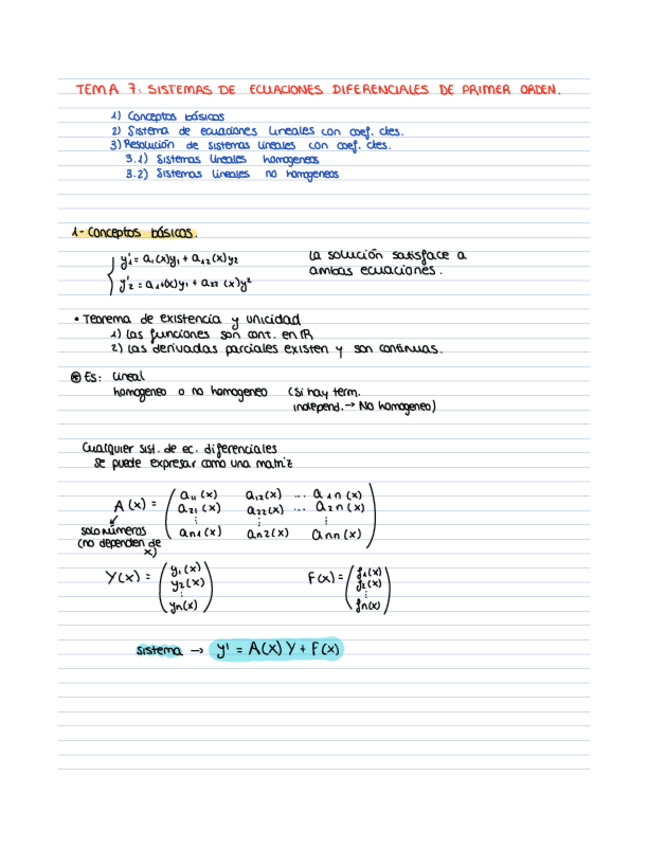 TEMA 7: SISTEMAS DE ECUACIONES DIFERENCIALES DE PRIMER ORDEN.
1) Conceptos básicos
2) Sistema de ecuaciones lineales con coef. ctes.
3) Resolución de sistemas lineales con coef. ctes.
3.1) Sistemas lineales homogeneos
3.2) Sistemas lineales no homogeneos
1- Conceptos básicos.
y'₁ = a₁(x)y₁ + a₁₂(x)y₂
La solución satisface a
ambas ecuaciones.
y'₂ = a₂₁(x)y₁ + a₂₂(x)y²
• Teorema de existencia y unicidad
1) Las funciones son cont. en ℝ
2) Las derivadas parciales existen y son continuas.
⊛ Es: Lineal
homogeneo o no homogeneo (Si hay term.
independ. → No homogeneo)
Cualquier sist. de ec. diferenciales
se puede expresar como una matriz
A(x) = ( a₁₁(x) a₁₂(x) ... a₁n(x)
a₂₁(x) a₂₂(x) ... a₂n(x)
⋮ ⋮ ⋮
an₁(x) an₂(x) ann(x) )
solo números
(no dependen de
x)
Y(x) = ( y₁(x)
y₂(x)
⋮
yn(x) )
F(x) = ( f₁(x)
f₂(x)
⋮
fn(x) )
sistema → y' = A(x) Y + F(x)